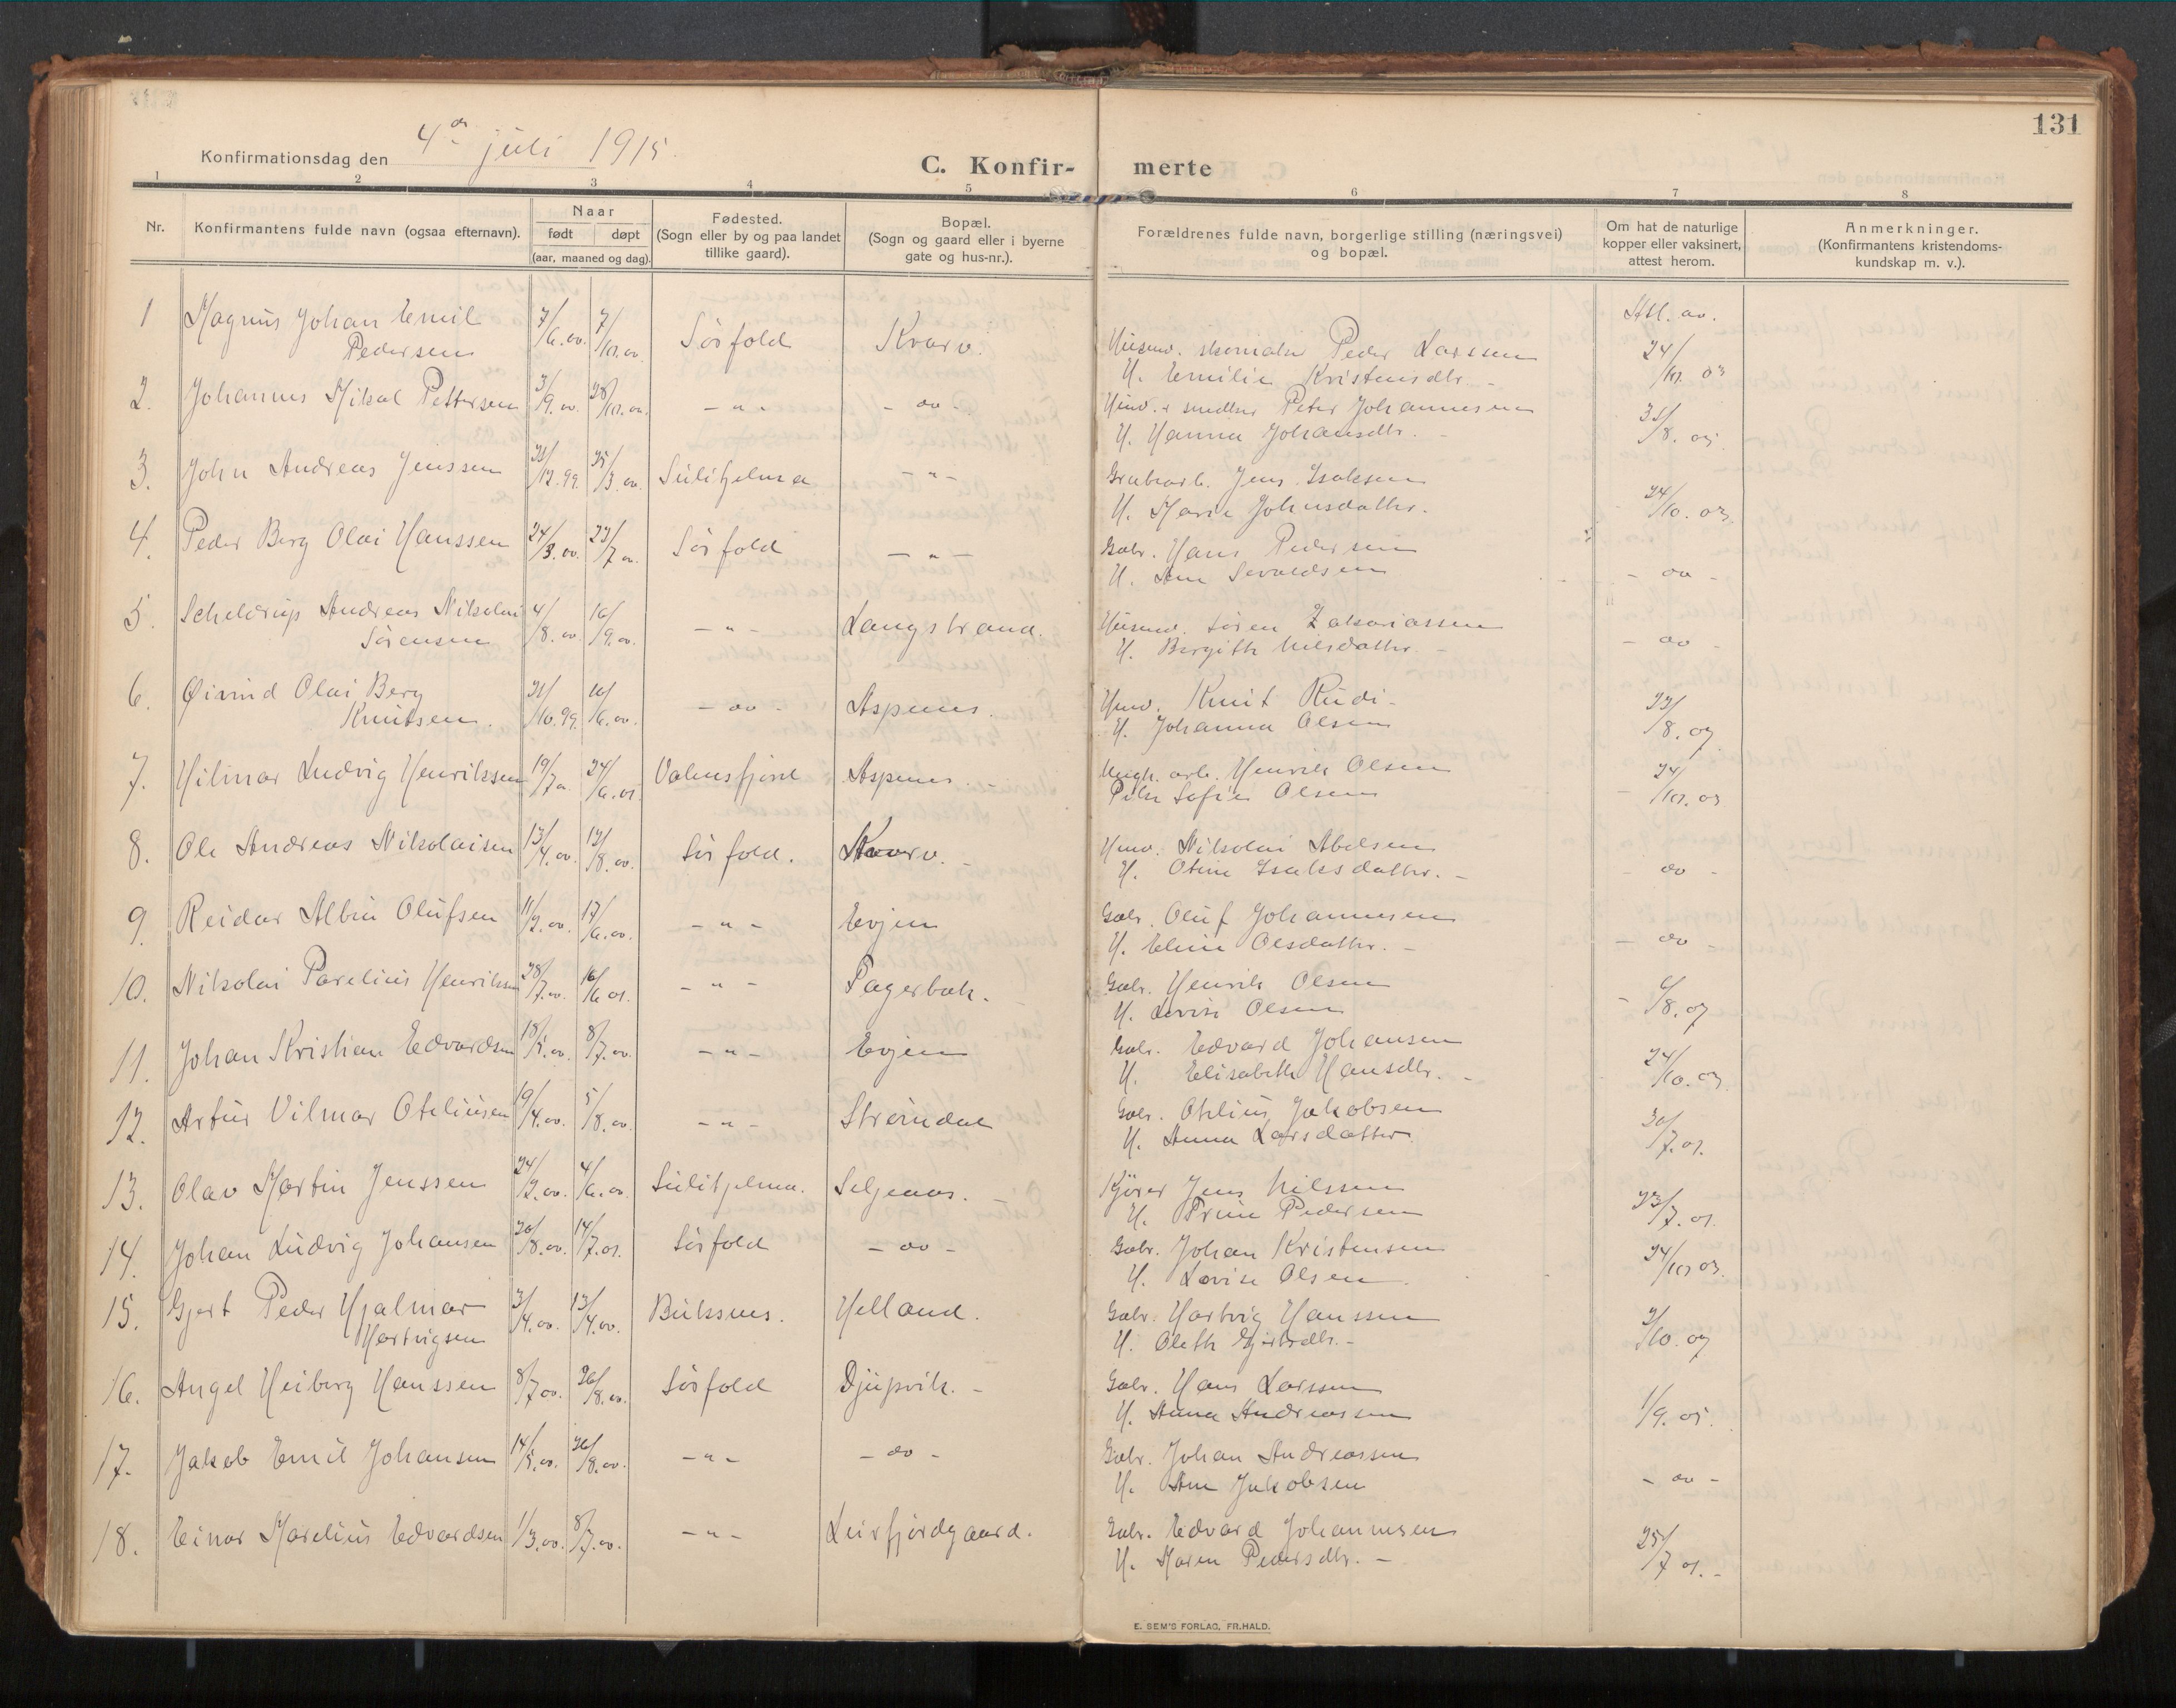 131
Konfirmationsdag den 4de juli 1915.
C. Konfir- merte
1 2 3 4 5 6 7 8
Nr.
Konfirmantens fulde navn (ogsaa efternavn).
Naar
født døpt
(aar, maaned og dag).
Fødested.
(Sogn eller by og paa landet
tillike gaard).
Bopæl.
(Sogn og gaard eller i byerne
gate og hus-nr.).
Forældrenes fulde navn, borgerlige stilling (næringsvei)
og bopæl.
Om hat de naturlige
kopper eller vaksinert,
attest herom.
Anmerkninger.
(Konfirmantens kristendoms-
kundskap m. v.).
Att. av.
1 Magnus Johan Emil 7/6.00. 7/10.00. Sørfold Kvarv. Husmd. skomaker Peder Larssen 24/10. 03
Pedersen H. Emilie Kristensdtr. -
2. Johannes Mikal Pettersen 3/9.00. 28/10.00. - " - - do - Hmd. & smed Peter Johannesen 31/8. 05.
H. Hanna Johansdtr. -
3. John Andreas Jenssen 31/12.99. 25/3.00. Sulitjelma - " - Grubearb. Jens Isaksen 24/10. 03.
H. Marie Johnsdatter.
4. Peder Berg Olai Hanssen 24/3.00. 23/7 00. Sørfold - " - Gbr. Hans Pedersen - do -
H. Ane Sevaldsen
5. Scheldrup Andreas Nikolai 4/8.00 16/9.00. - " - Langstrand. Husmd. Søren Zakariassen - do -
Sørensen H. Bergitte Nilsdatter. -
6. Øivind Olai Berg 31/10.99. 10/6.00. - do - Aspenes. Hmd. Knut Rudi - 23/8. 07
Knutsen. H. Johanna Olsen
7. Hilmar Ludvig Henriksen 19/7 00. 24/6.01. Valnesfjord Aspenes. - Henrik Olsen 24/10. 03
Sofie Olsen
8. Ole Andreas Nikolaisen 13/4.00. 12/8.00. Sørfold. Kvarv. - Hmd. Nikolai Abelsen - do -
H. Otine Isaksdatter. -
9. Reidar Albin Olufsen 11/2.00. 17/6.00. - " - Evjen Gbr. Oluf Johannesen - do -
H. Eline Olsdatter. -
10. Nikolai Parelius Henriksen 28/7.00. 16/6 01. - " - Fagerbak. Gbr. Henrik Olsen 6/8. 07
H. Lovise Olsen
11. Johan Kristian Edvardsen 18/5.00. 8/7.00. - " - Evjen Gbr. Edvard Johansen 24/10. 03.
H. Elisabeth Hansdtr. -
12. Artur Vilmar Oteliusen 19/4.00. 5/8.00. - " - Strømdal Gbr. Otelius Jakobsen 30/7.01.
H. Anna Larsdatter.
13. Olav Martin Jenssen 24/2.00. 4/6.00. Sulitjelma. Seljeaas. - Kjører Jens Nilssen 23/7.01.
H. Trine Pedersen
14. Johan Ludvig Johansen 20/8.00. 14/7.01. Sørfold - do - Gbr. Johan Kristensen 24/10 03.
H. Lovise Olsen.
15. Gjert Peder Hjalmar 3/4.00. 13/4.00. Buksnes. Helland. Gbr. Hartvig Hanssen 2/10. 07
Hartvigsen H. Oleth Gjertsdtr. -
16. Angel Heiberg Hanssen 8/7 00. 26/8.00. Sørfold Djupvik. - Gbr. Hans Larssen 1/9. 05.
H. Anna Andreassen
17. Jakob Emil Johansen 14/5.00. 26/8.00. - " - - do - Gbr. Johan Andreassen - do -
H. Ane Jakobsen
18. Einar Marelius Edvardsen 1/3.00. 8/7.00. - " - Leirfjordgaard. Gbr. Edvard Johannesen 25/7 01. -
H. Maren Pedersdtr. -
E. SEM'S FORLAG, FR.HALD.